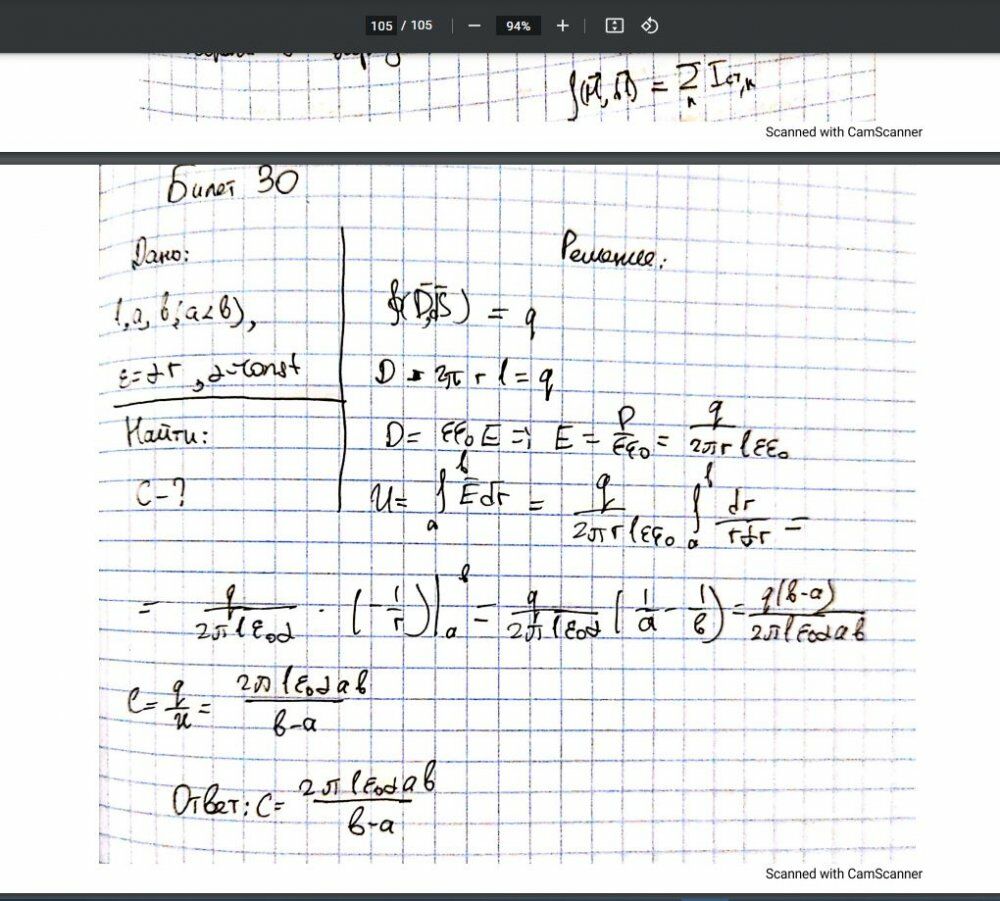 105 / 105
94%
∮(H̄, dl̄) = Σ I ст,к
к
Scanned with CamScanner
Билет 30
Дано:
l, a, в, (a<в),
ε=αr, α-const
Найти:
C-?
Решение:
∮(D̄,dS̄) = q
D · 2π r l = q
D = εε₀E => E = D/εε₀ = q/2πr l εε₀
U = ∫ₐᵇ Ēdr = q/2πr l εε₀ ∫ₐᵇ dr/rαr =
= q/2π l ε₀α · (-1/r)|ₐᵇ = q/2π l ε₀α (1/a - 1/в) = q(в-a)/2π l ε₀α a в
C = q/u = 2π l ε₀α a в/в-a
Ответ: C = 2π l ε₀α a в/в-a
Scanned with CamScanner